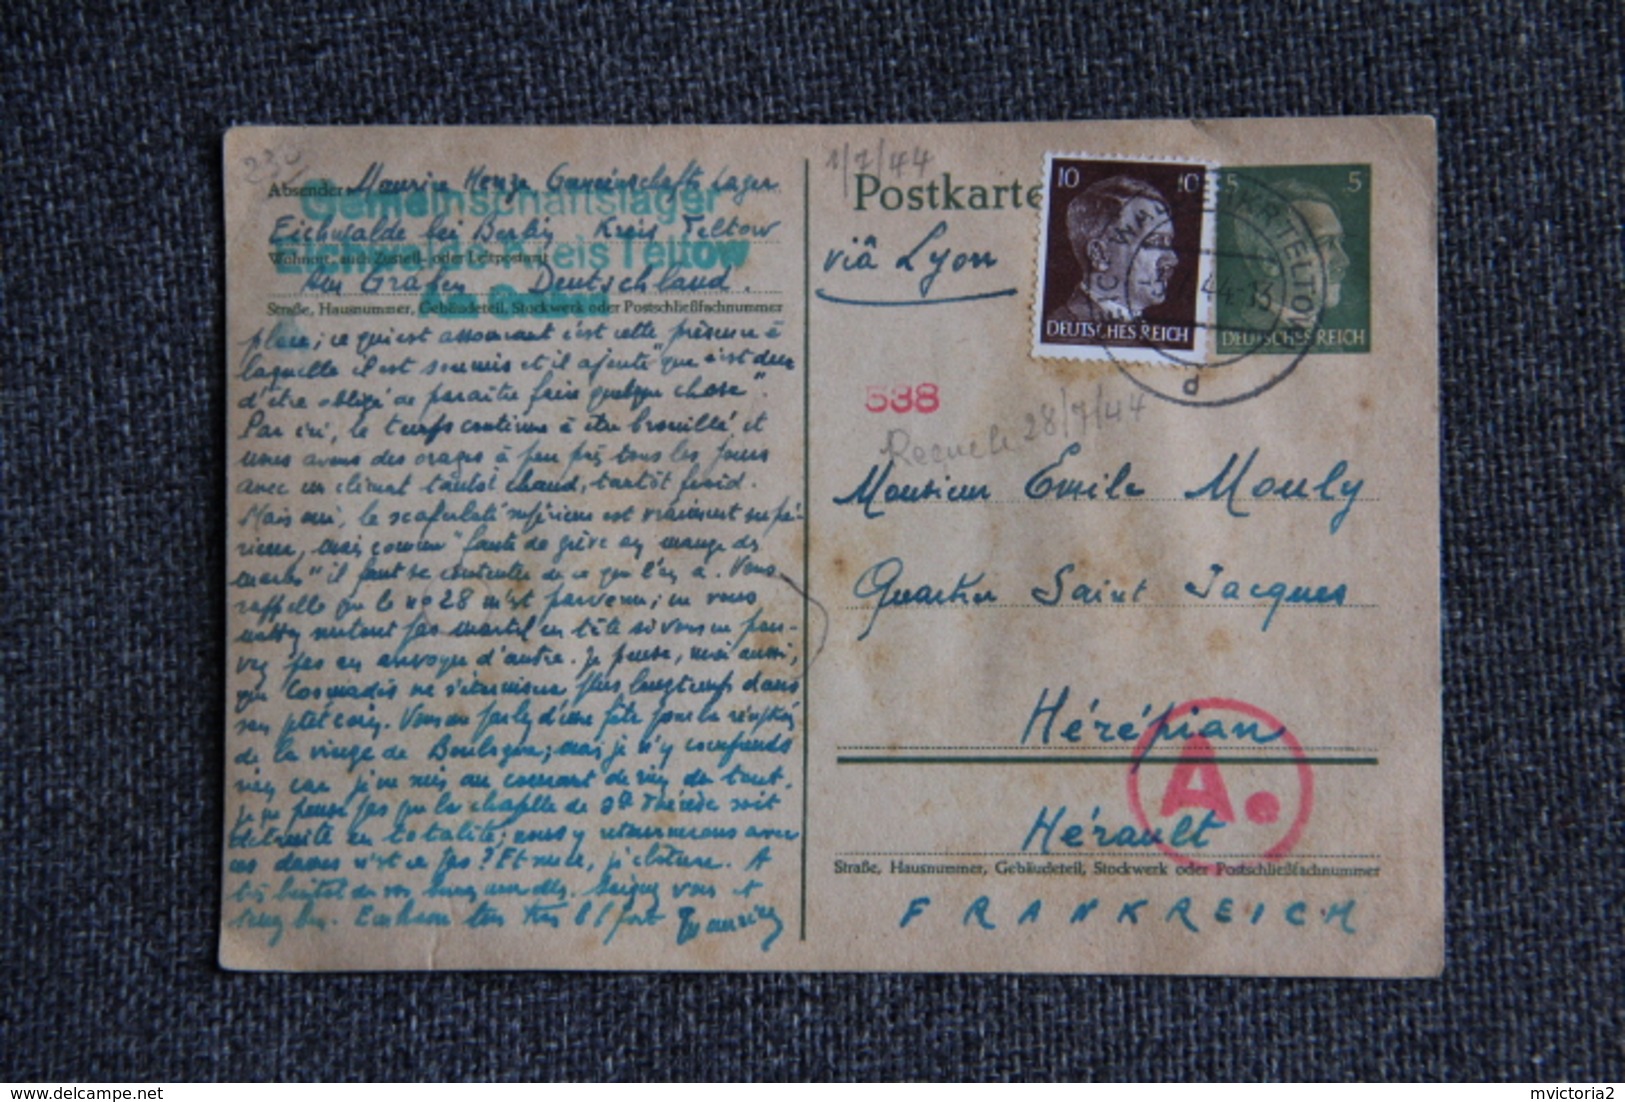 Absender: Maurice Gemeinschaftslager
Gemeinschaftslager
Eichwalde bei Berlin Kreis Teltow
Eichwalde Kreis Teltow
Wohnort, auch Zustell- oder Leitpostamt
Am Graben Deutschland.
Am Graben
Straße, Hausnummer, Gebäudeteil, Stockwerk oder Postschließfachnummer
place; ce qui est assommant c'est cette présence à
laquelle il est soumis et il ajoute "que c'est dur
d'être obligé de paraître faire quelque chose"
Par ici, le temps continue à être brouillé et
nous avons des orages à peu près tous les jours
avec un climat tantôt chaud, tantôt froid.
Mais oui, le scaferlati supérieur est vraiment supé-
rieur, mais comme "faute de grive on mange des
merles" il faut se contenter de ce qu'on a. Vous
rappelle que le n° 28 m'est parvenu; ne vous
mettez surtout pas martel en tête si vous ne pou-
vez pas en envoyer d'autre. Je pense, moi aussi,
que ne s'éternisera plus longtemps dans
son petit coin. Vous me parlez d'une fête pour la réception
de la vierge de Boulogne; mais je n'y comprends
rien car je ne suis au courant de rien du tout.
Je ne pense pas que la chapelle de Ste Thérèse soit
détruite en totalité; nous y retournerons avec
ces dames n'est ce pas? Et je clôture. A
bientôt de vos nouvelles. Soignez vous et
bien fort Maurice
1/7/44
Postkarte
viâ Lyon
10 10
DEUTSCHES REICH
5 5
DEUTSCHES REICH
TELTOW
44-13
d
538
Reçue le 28/7/44
Monsieur Emile Mouly
Quartier Saint Jacques
Hérépian
A.
Hérault
Straße, Hausnummer, Gebäudeteil, Stockwerk oder Postschließfachnummer
FRANKREICH
www.delcampe.net
mvictoria2